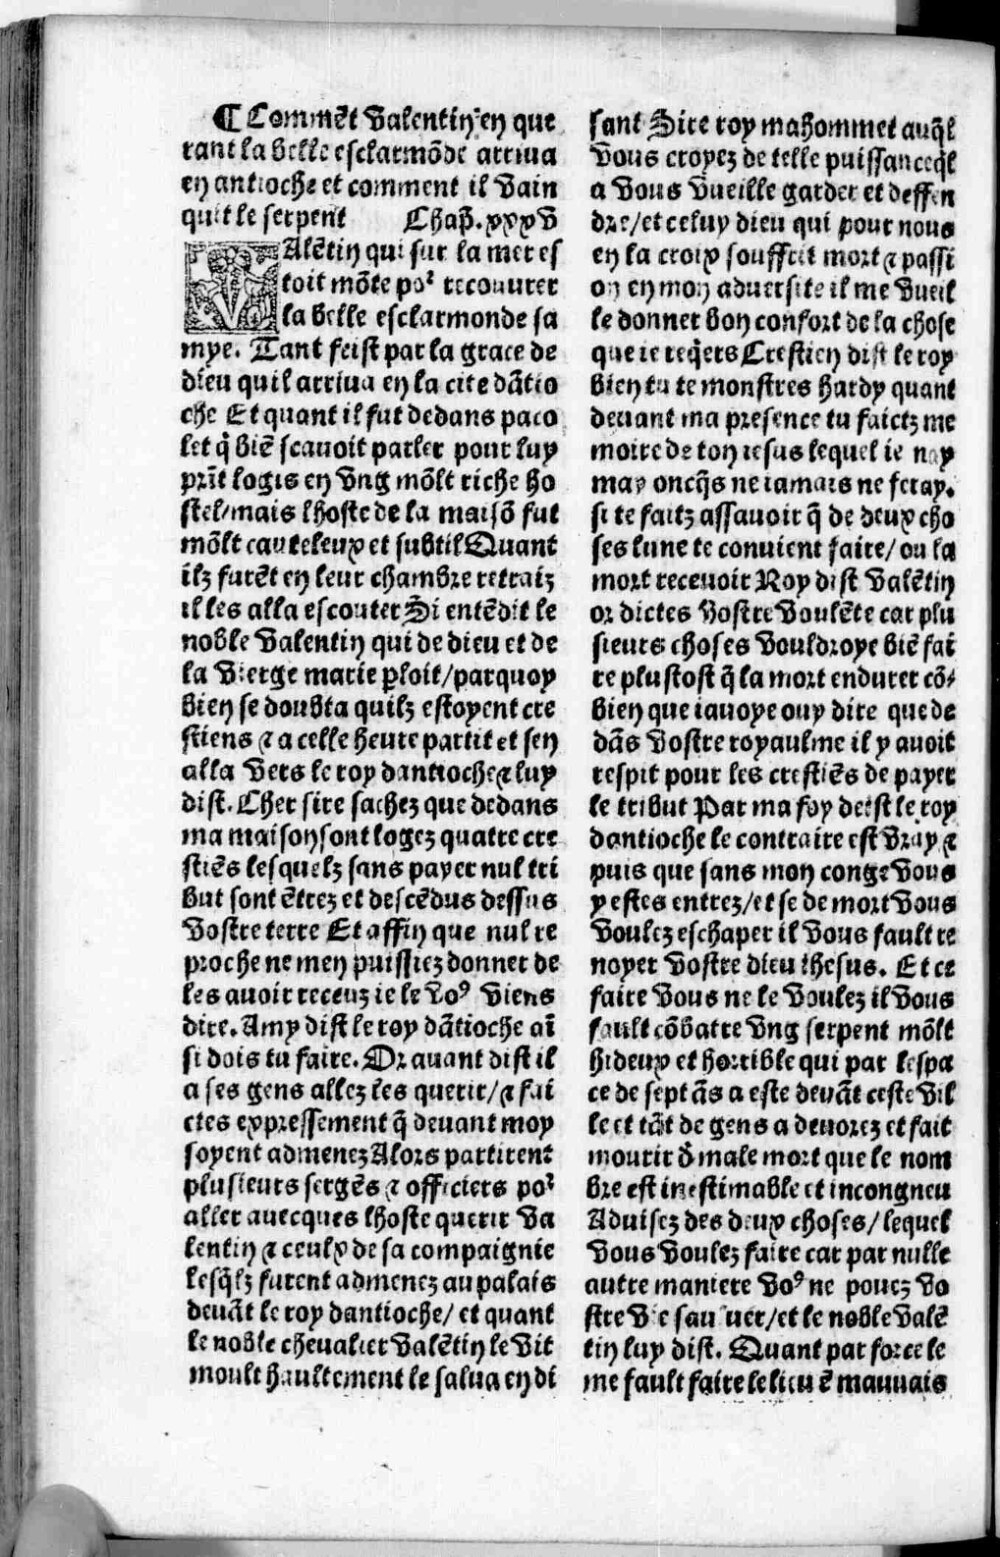 ¶ Commēt Valentin en que
rant la belle esclarmōde arriua
en antioche et comment il vain
quit le serpent Chap̄. xxxv
VAlētin qui sur la mer es
toit mōte poʳ recouurer
la belle esclarmonde sa
mye. Tant feist par la grace de
dieu quil arriua en la cite dātio
che Et quant il fut dedans paco
let q̄ biē scauoit parler pour luy
prīt logis en vng mōlt riche ho
stel/mais lhoste de la maisō fut
mōlt cauteleux et subtil Quant
ilz furēt en leur chambre retraiz
il les alla escouter Si entēdit le
noble Valentin qui de dieu et de
la vierge marie ꝑloit/parquoy
bien se doubta quilz estoyent cre
stiens ⁊ a celle heure partit et sen
alla vers le roy dantioche ⁊ luy
dist. Cher sire sachez que dedans
ma maison sont logez quatre cre
stiēs lesquelz sans payer nul tri
but sont ētrez et descēdus dessus
vostre terre Et affin que nul re
proche ne men puissiez donner de
les auoir receuz ie le voꝰ viens
dire. Amy dist le roy dātioche aī
si dois tu faire. Or auant dist il
a ses gens allez les querir/⁊ fai
ctes expressement q̄ deuant moy
soyent admenez Alors partirent
plusieurs sergēs ⁊ officiers poʳ
aller auecques lhoste querir Va
lentin ⁊ ceulx de sa compaignie
lesq̄lz furent admenez au palais
deuāt le roy dantioche/ et quant
le noble cheualier Valētin le vit
moult haultement le salua en di
sant Sire roy mahommet auq̄l
vous croyez de telle puissance q̄l
a vous vueille garder et deffen
dre/et celuy dieu qui pour nous
en la croix souffrit mort ⁊ passi
on en mon aduersite il me vueil
le donner bon confort de la chose
que ie req̄ers Crestien dist le roy
bien tu te monstres hardy quant
deuant ma presence tu faictz me
moire de ton iesus lequel ie nay
may oncq̄s ne iamais ne feray.
si te faitz assauoir q̄ de deux cho
ses lune te conuient faire/ou la
mort receuoir Roy dist Valētin
or dictes vostre voulēte car plu
sieurs choses vouldroye biē fai
re plustost q̄ la mort endurer cō-
bien que iauoye ouy dire que de
dās vostre royaulme il y auoit
respit pour les crestiēs de payer
le tribut Par ma foy deist le roy
dantioche le contraire est vray ⁊
puis que sans mon conge vous
y estes entrez/et se de mort vous
voulez eschaper il vous fault re
noyer vostre dieu ihesus. Et ce
faire vous ne le voulez il vous
fault cōbatre vng serpent mōlt
hideux et horrible qui par lespa
ce de sept ās a este deuāt ceste vil
le et tāt de gens a deuorez et fait
mourir d̄ male mort que le nom
bre est inestimable et incongneu
Aduisez des deux choses/lequel
vous voulez faire car par nulle
autre maniere voꝰ ne pouez vo
stre vie sauuer/et le noble Valē
tin luy dist. Quant par force le
me fault faire le lieu ē mauuais